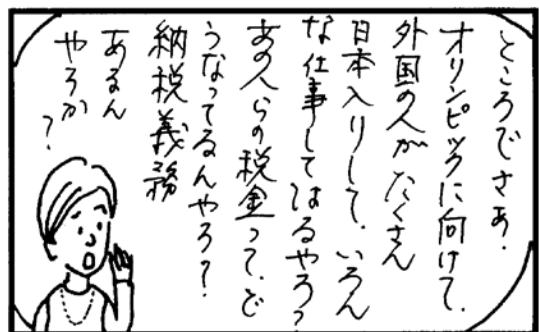 ところでさあ.
オリンピックに向けて.
外国の人がたくさん
日本入りして.いろん
な仕事してはるやろ?
あの人らの税金って.ど
うなってるんやろ?
納税義務
あるん
やろか?